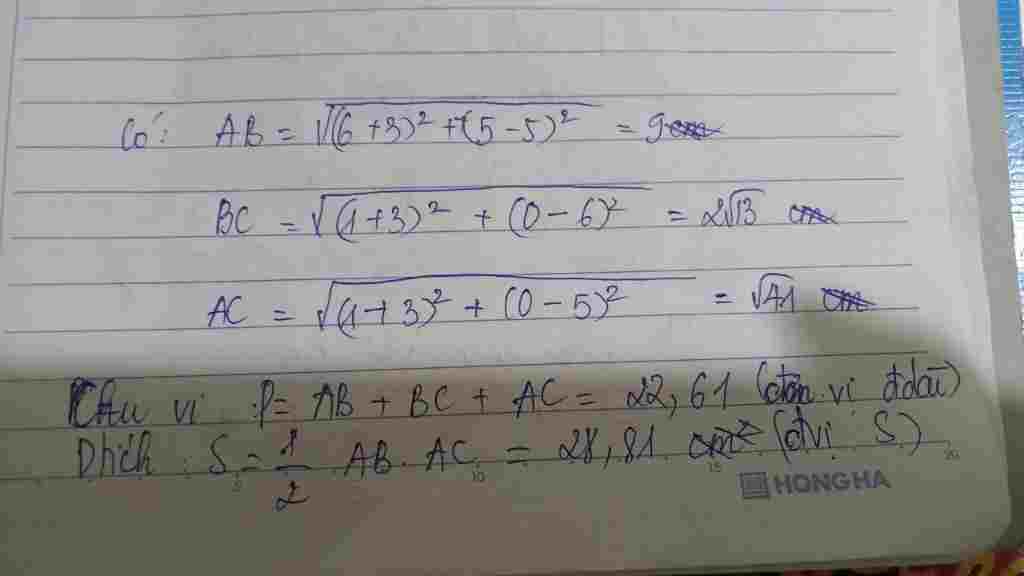 Có: AB = √(6+3)² + (5-5)² = 9 cm
BC = √(1+3)² + (0-6)² = 2√13 cm
AC = √(1+3)² + (0-5)² = √41 cm
Chu vi : P = AB + BC + AC = 22,61 (đơn vị đdài)
Dtích : S = 1/2 AB. AC = 28,81 cm² (đvi S)
5 10 15 20
HONG HA